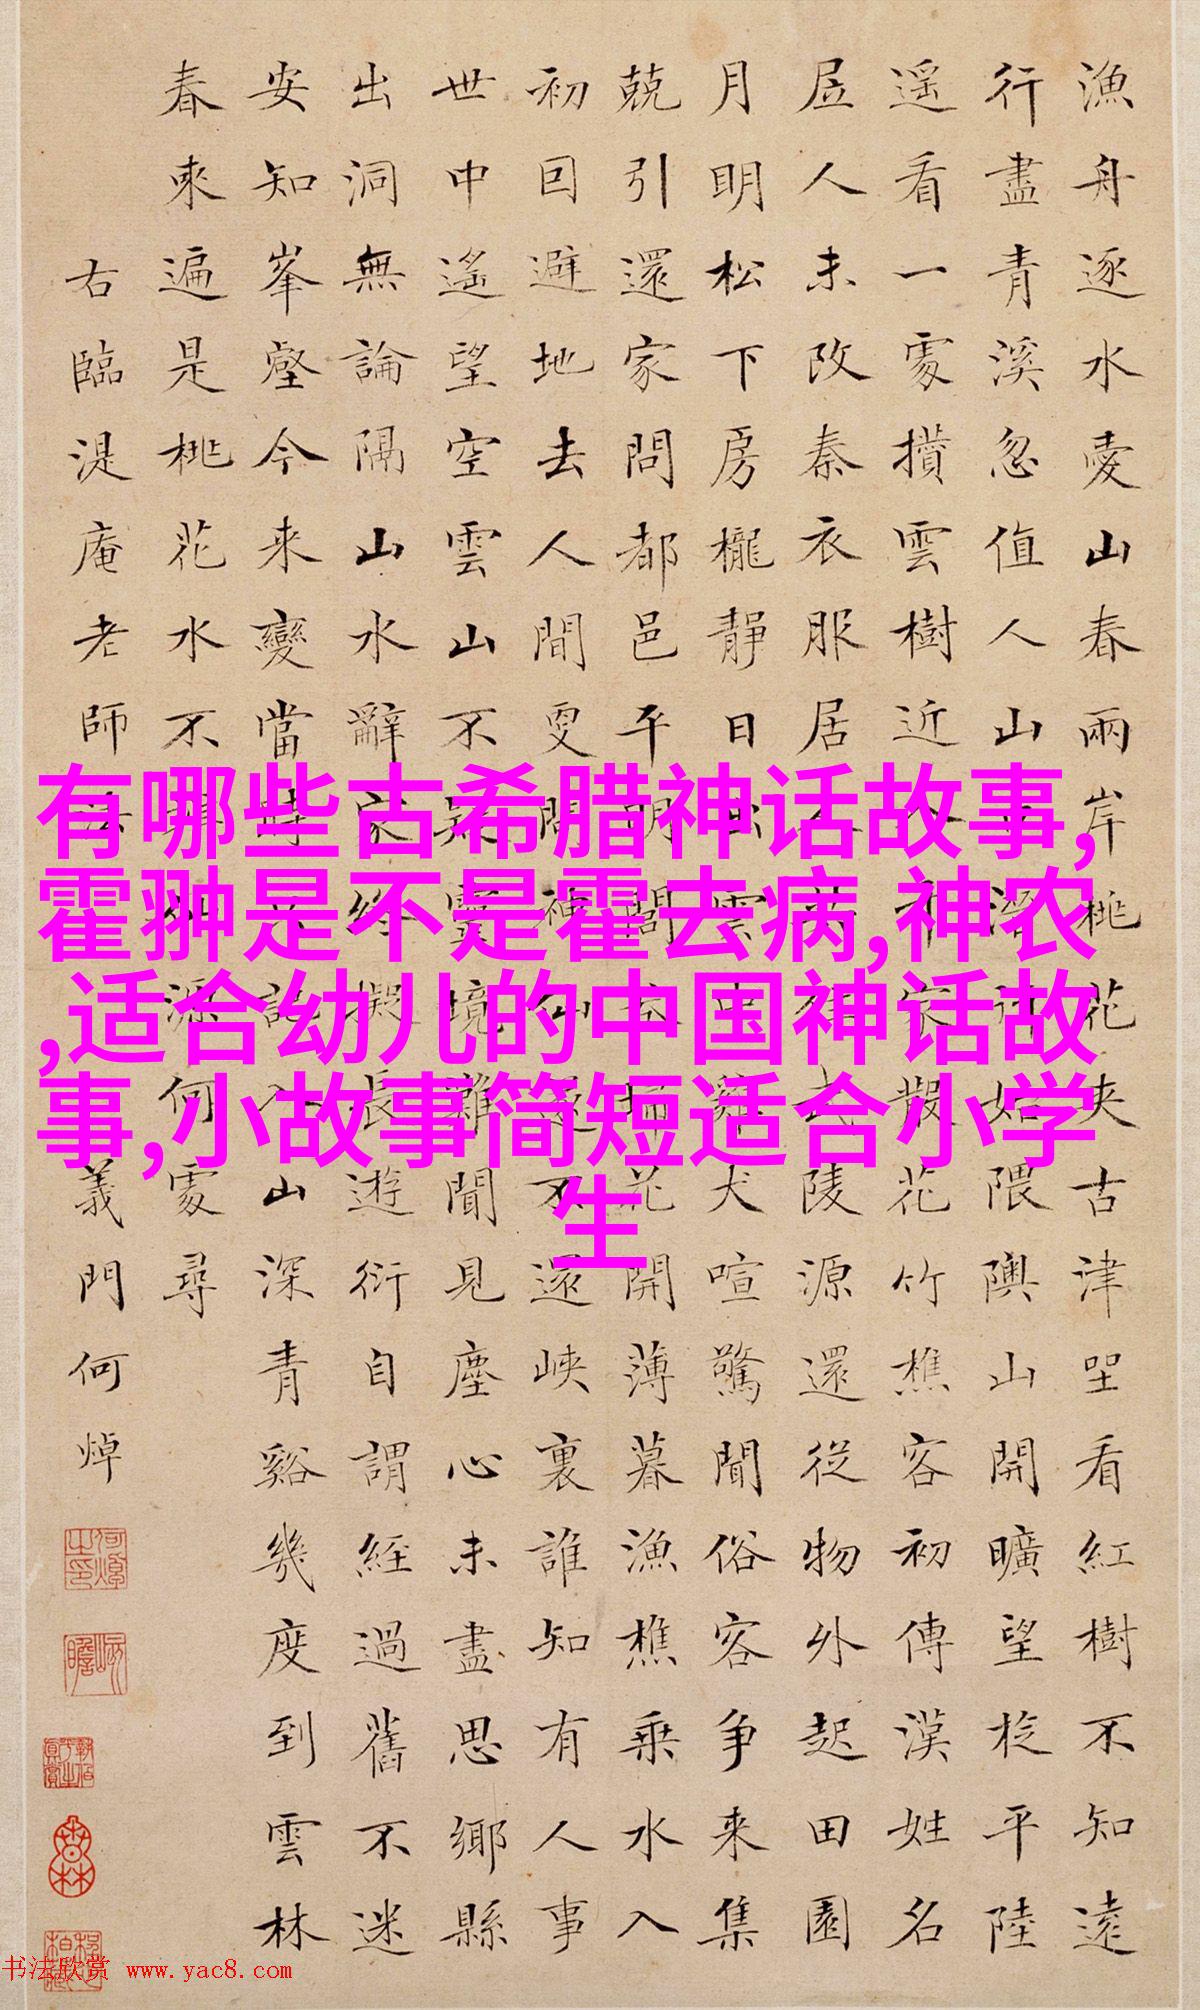 漁舟逐水愛山春兩岸桃花夾古津坐看紅樹不知遠
行盡青溪忽值人山口潛行始隈隩山開曠望旋平陸
遥看一處攢雲樹近入千家散花竹樵客初傳漢姓名
居人未改秦衣服居人共住武陵源還從物外起田園
月明松下房櫳靜日出雲中雞犬喧驚聞俗客爭來集
競引還家問都邑平明閭巷掃花開薄暮漁樵乘水入
初因避地去人間更聞神仙遂不還峽裏誰知有人事
世中遙望空雲山不疑靈境難聞見塵心未盡思鄉縣
出洞無論隔山水辭家終擬長遊衍自謂經過舊不迷
安知峯壑今来變當時只記入山深青谿幾度到雲林
春來遍是桃花水不辨仙源何處尋
右臨湜庵老師法
義門何焯
有哪些古希腊神话故事,
霍翀是不是霍去病,神农
,适合幼儿的中国神话故
事,小故事简短适合小学
生
书法欣赏 www.yac8.com